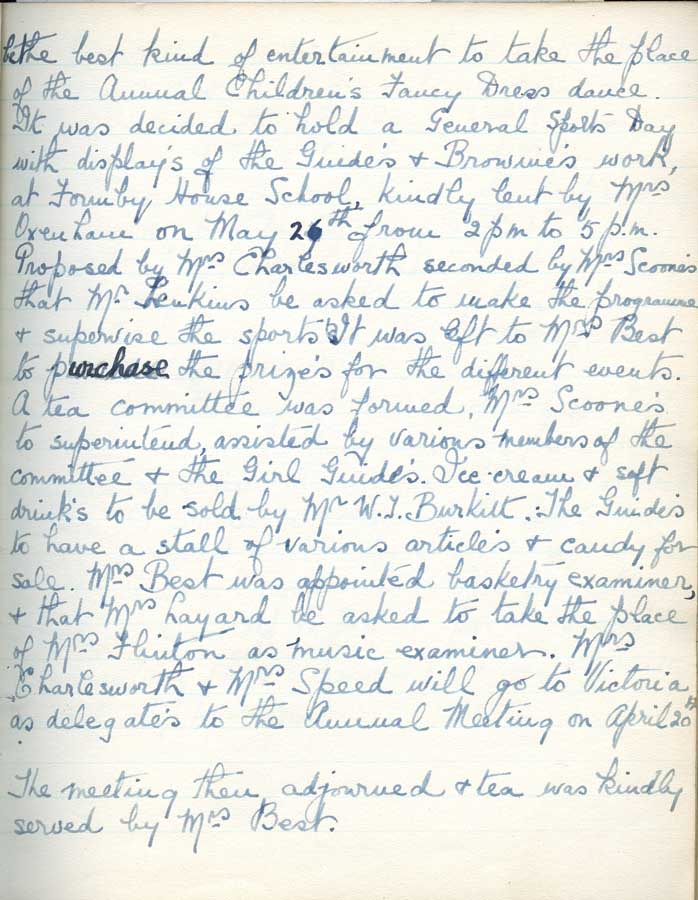 be the best kind of entertainment to take the place
of the Annual Children's Fancy Dress dance.
It was decided to hold a General Sports Day
with display's of the Guide's & Brownie's work,
at Formby House School, kindly lent by Mrs
Oxenham on May 26th from 2 pm to 5 p.m.
Proposed by Mrs Charlesworth seconded by Mrs Scoones
that Mr Jenkins be asked to make the programme
& supervise the sports. It was left to Mrs Best
to purchase the prize's for the different events.
A tea committee was formed, Mrs Scoones
to superintend, assisted by various members of the
committee & the Girl Guide's. Ice-cream & soft
drink's to be sold by Mr W. J. Burkitt. The Guides
to have a stall of various article's & candy for
sale. Mrs Best was appointed basketry examiner,
& that Mrs Layard be asked to take the place
of Mrs Flinton as music examiner. Mrs
Charlesworth & Mrs Speed will go to Victoria
as delegate's to the Annual Meeting on April 20th
The meeting then adjourned & tea was kindly
served by Mrs Best.